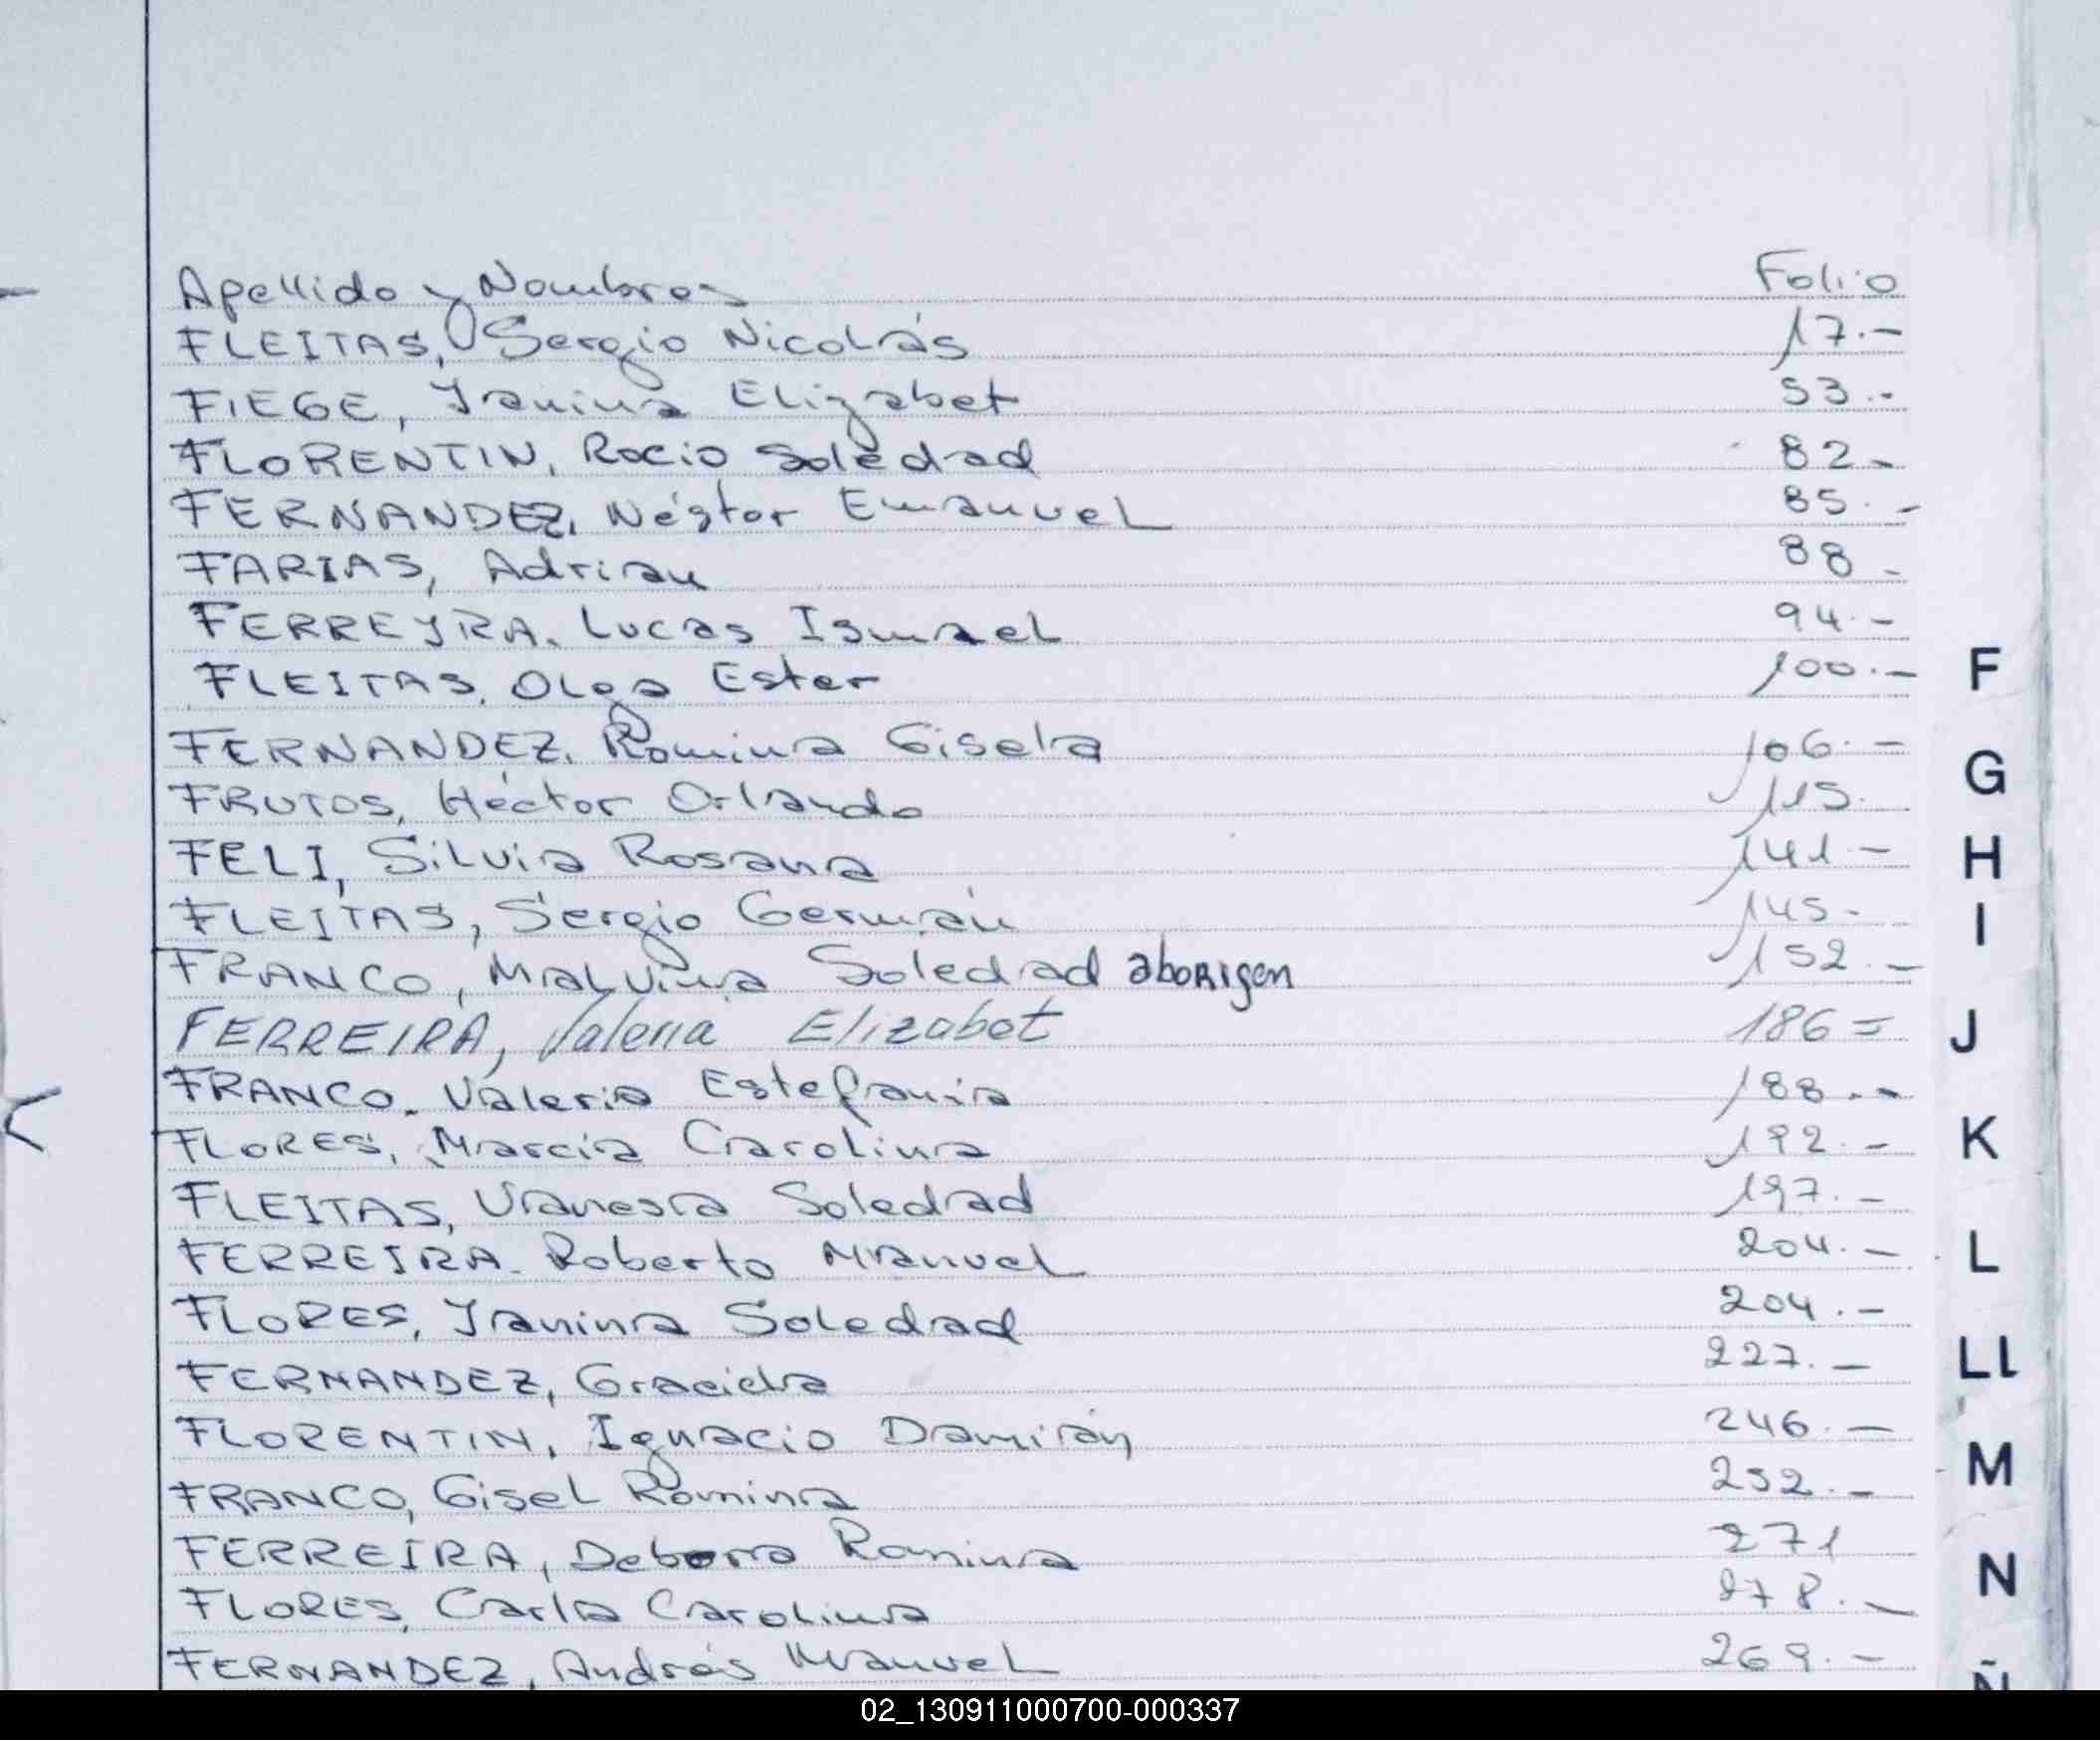 Apellido y Nombres Folio
FLEITAS, Sergio Nicolás 17.-
FIEGE, Yanina Elizabet 53.-
FLORENTIN, Rocio Soledad 82-
FERNANDEZ, Néstor Emanuel 85.-
FARIAS, Adrian 88-
FERREYRA, Lucas Ismael 94.-
FLEITAS, Olga Ester 100.-
F
FERNANDEZ, Romina Gisela 106.-
G
FRUTOS, Héctor Orlando 115.
FELI, Silvia Rosana 141-
H
FLEITAS, Sergio Germán 145-
I
FRANCO, Malvina Soledad aborigen 152.-
FERREIRA, Valeria Elizabet 186=
J
FRANCO, Valeria Estefania 188.-
FLORES, Marcia Carolina 192.-
K
FLEITAS, Vanesa Soledad 197.-
FERREIRA. Roberto Manuel 204.-
L
FLORES, Yanina Soledad 204.-
FERNANDEZ, Graciela 227.-
Ll
FLORENTIN, Ignacio Damián 246.-
FRANCO, Gisel Romina 252.-
M
FERREIRA, Debora Romina 271
FLORES, Carla Carolina 278.-
N
FERNANDEZ, Andrés Manuel 269.-
Ñ
02_130911000700-000337